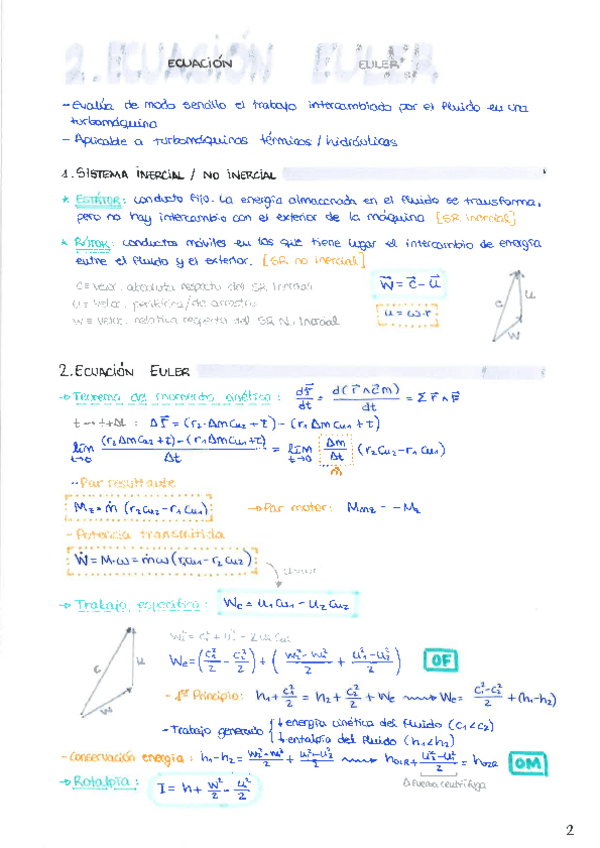 2. ECUACIÓN EULER
- Evalúa de modo sencillo el trabajo intercambiado por el fluido en una
turbomáquina
- Aplicable a turbomáquinas térmicas / hidráulicas
1. SISTEMA INERCIAL / NO INERCIAL
* ESTÁTOR: conducto fijo. La energía almacenada en el fluido se transforma,
pero no hay intercambio con el exterior de la máquina [SR inercial]
* RÓTOR: conductos móviles en los que tiene lugar el intercambio de energía
entre el fluido y el exterior. [SR no inercial]
C ≡ veloc. absoluta respecto del SR Inercial
u ≡ veloc. periférica / de arrastre
w ≡ veloc. relativa respecto del SR N. Inercial
w⃗ = c⃗ - u⃗
u = ω·r
c u w
2. ECUACIÓN EULER
→ Teorema del momento cinético: dτ⃗/dt = d(r⃗∧c⃗m)/dt = Σ r⃗∧F⃗
t → t+Δt : Δτ⃗ = (r₂·Δm Cu₂ + τ) - (r₁Δm Cu₁ + τ)
lím t→0 (r₂Δm Cu₂ + τ) - (r₁Δm Cu₁ + τ) / Δt = lím t→0 Δm/Δt (r₂Cu₂ - r₁Cu₁)
ṁ
- Par resultante
Mz = ṁ (r₂Cu₂ - r₁Cu₁) → Par motor: Mmz = -Mz
- Potencia transmitida
Ẇ = M·ω = ṁω (r₁Cu₁ - r₂Cu₂)
→ Trabajo específico: We = u₁Cu₁ - u₂Cu₂
c u w
We = (c₁²/2 - c₂²/2) + (w₂² - w₁²/2 + u₁² - u₂²/2) OF
- 1er Principio: h₁ + c₁²/2 = h₂ + c₂²/2 + We ⟶ We = c₁² - c₂²/2 + (h₁ - h₂)
- Trabajo generado { ↓ energía cinética del fluido (C₁<C₂)
↓ entalpía del fluido (h₁<h₂)
- Conservación energía: h₁ - h₂ = w₂² - w₁²/2 + u₁² - u₂²/2 ⟶ h01R + u₂² - u₁²/2 = h02R OM
Δ fuerza centrífuga
→ Rotalpía: I = h + w²/2 - u²/2
2